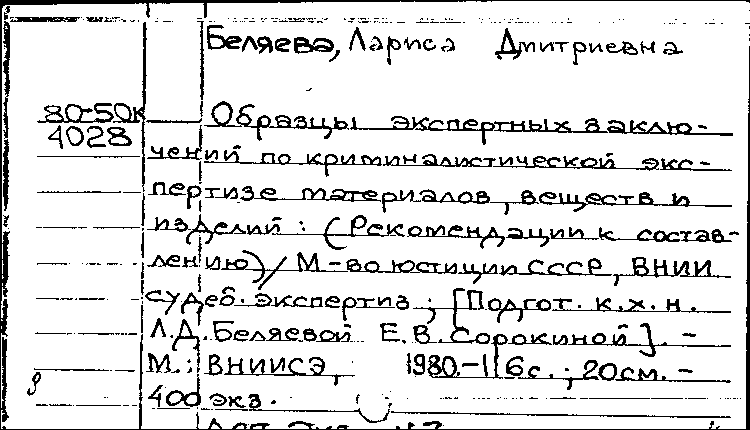 Беляева, Лариса Дмитриевна
80-50к
4028
Образцы экспертных заклю-
чений по криминалистической экс-
пертизе материалов, веществ и
изделий: (Рекомендации к состав-
лению) / М-во юстиции СССР, ВНИИ
судеб. экспертиз; [Подгот. к.х.н.
Л.Д. Беляевой Е.В. Сорокиной]. -
М.: ВНИИСЭ, 1980. - 116с.; 20см. -
400 экз.